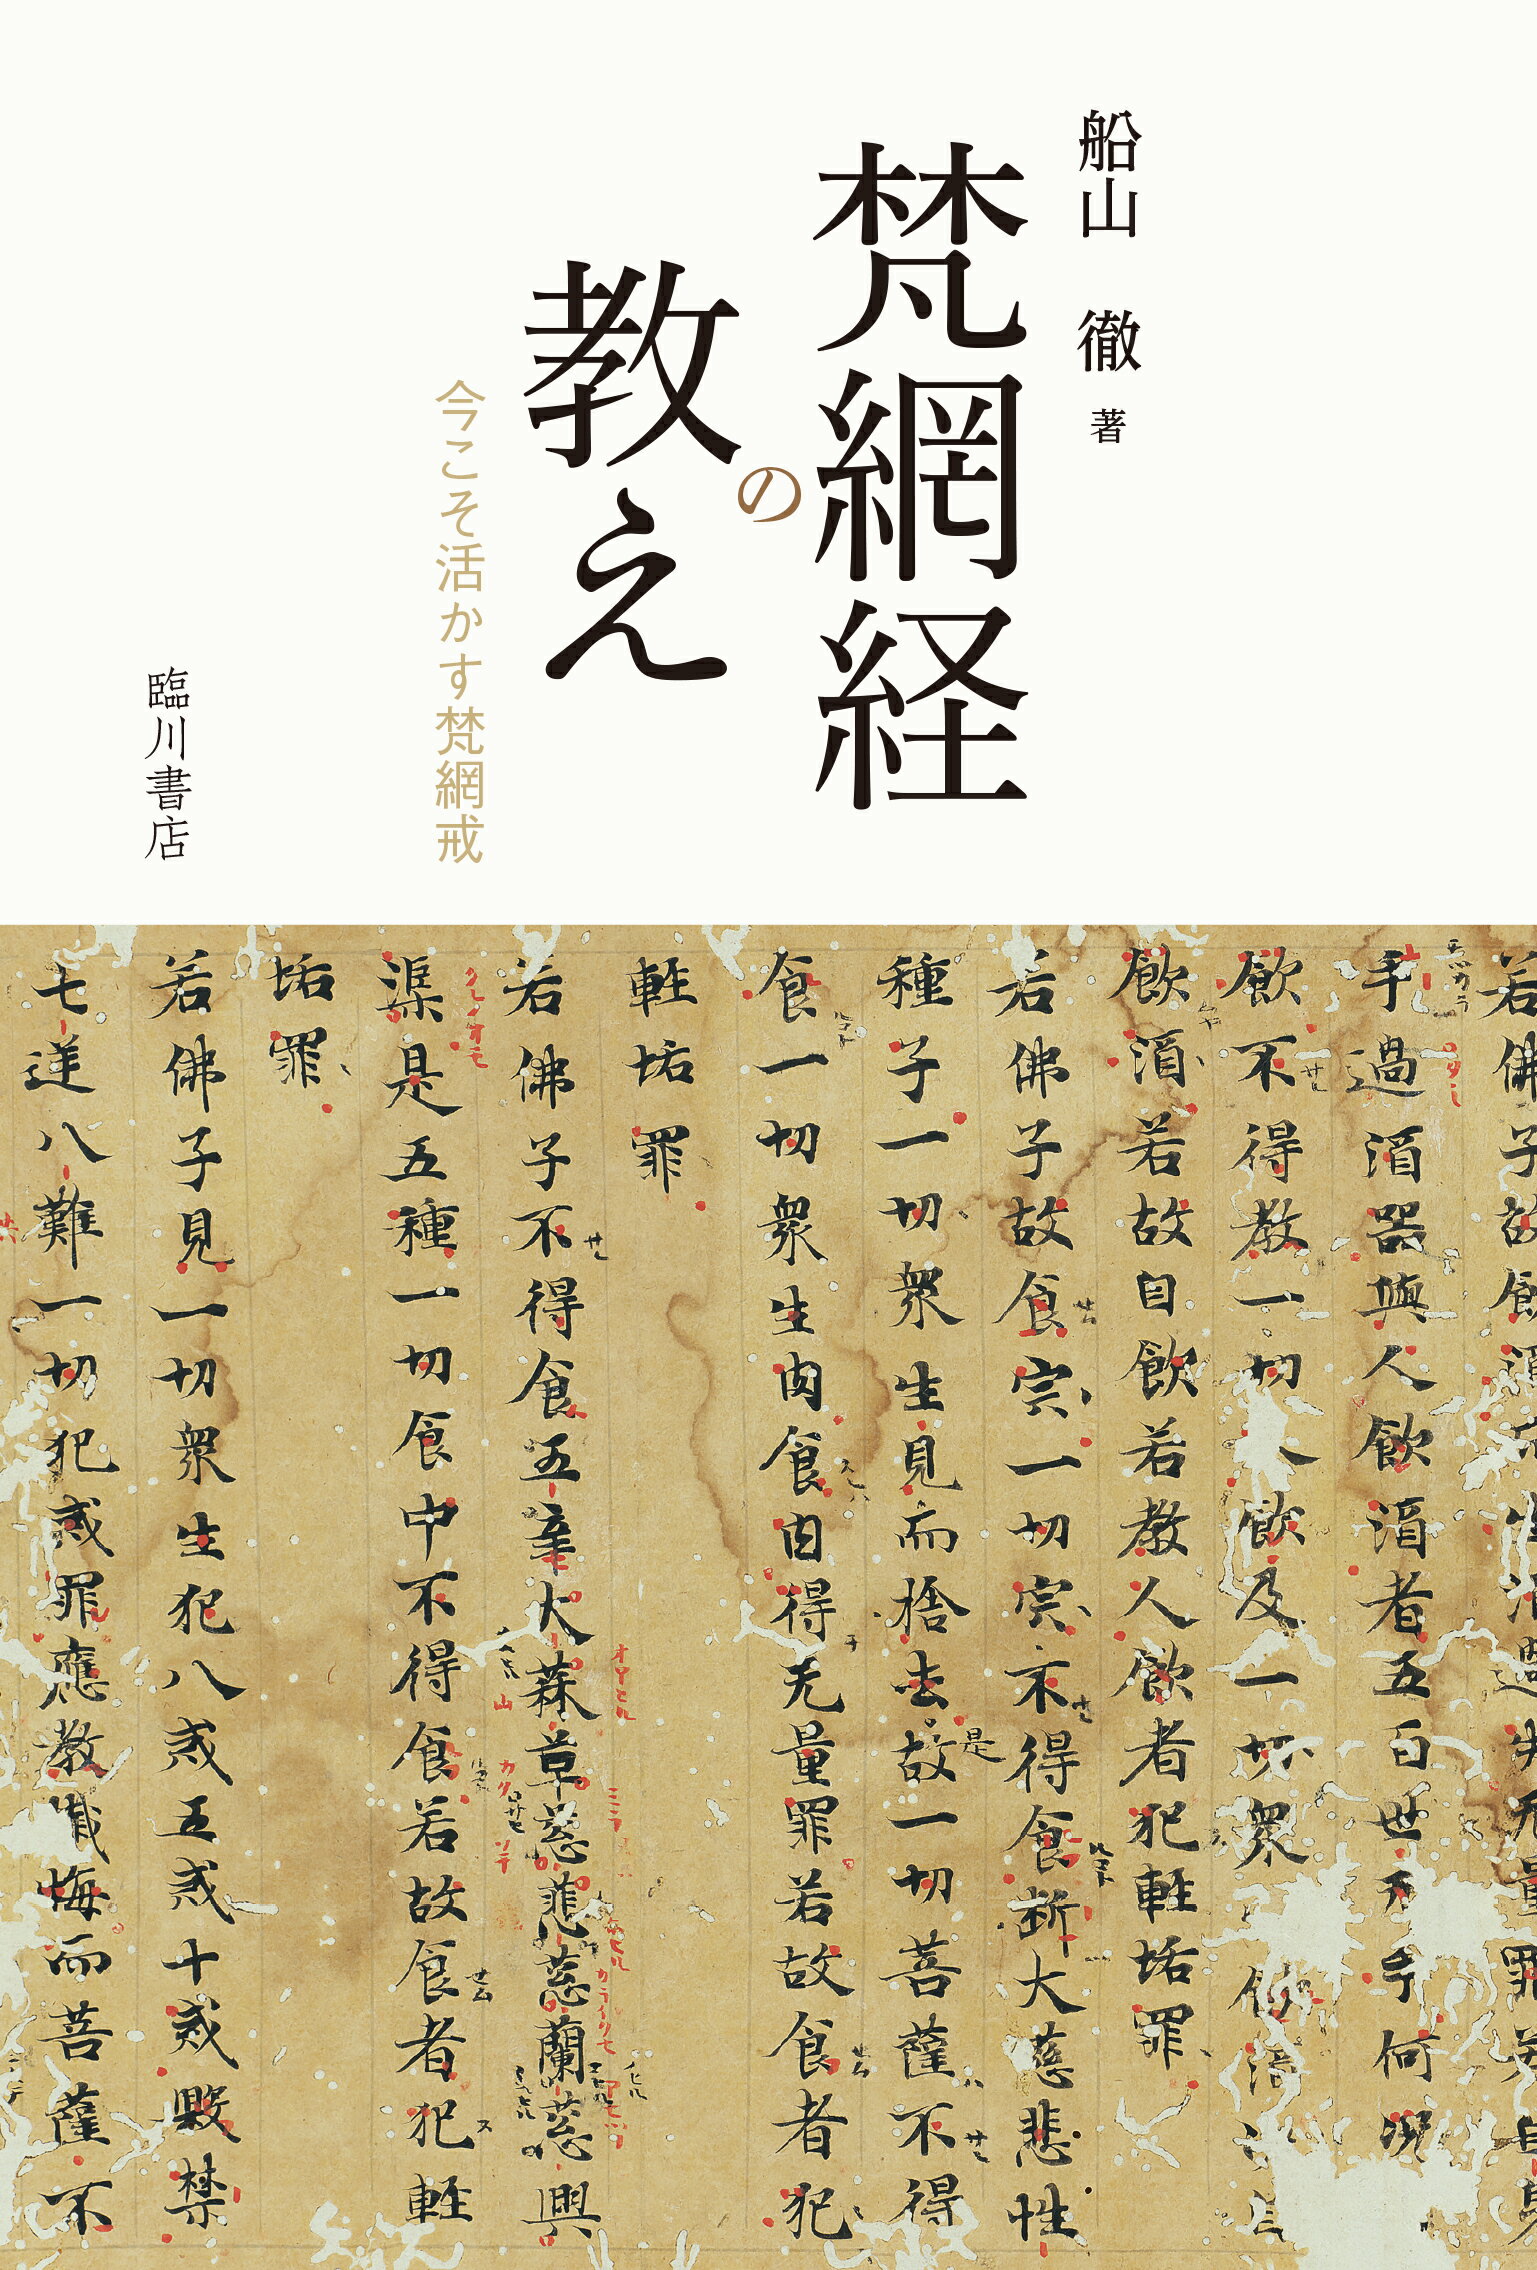 船山 徹 著
梵網経
の
教え
今こそ活かす梵網戒
臨川書店
若佛子故飲
手過酒器與人飲酒者五百世无手何況
飲不得教一切人飲及一切衆
飲酒若故自飲若教人飲者犯軽垢罪
若佛子故食宍一切宍不得食断大慈悲性
種子一切衆生見而捨去故一切菩薩不得
食一切衆生肉食肉得无量罪若故食者犯
軽垢罪
若佛子不得食五辛大蒜草慈悲慈蘭慈興
渠是五種一切食中不得食若故食者犯軽
垢罪
若佛子見一切衆生犯八戒五戒十戒毀禁
七逆八難一切犯戒罪應教懺悔而菩薩不